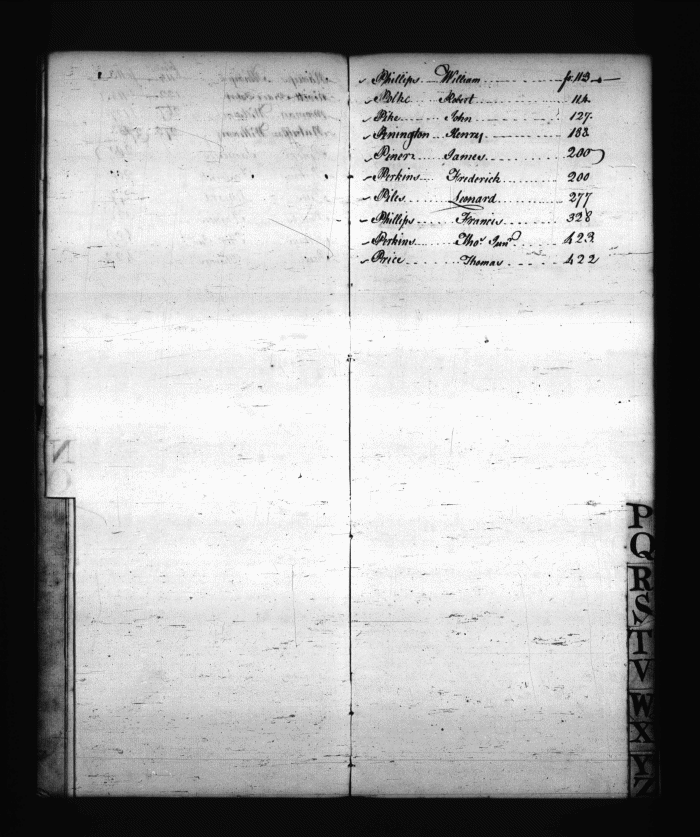 Phillips William fo. 113
Polke Robert 114
Pike John 127
Penington Henry 188
Piner James 200
Perkins Frederick 200
Piles Leonard 277
Phillips Francis 328
Perkins Thos Junr 423
Price Thomas 422
N
O
P
Q
R
S
T
V
W
X
Y
Z